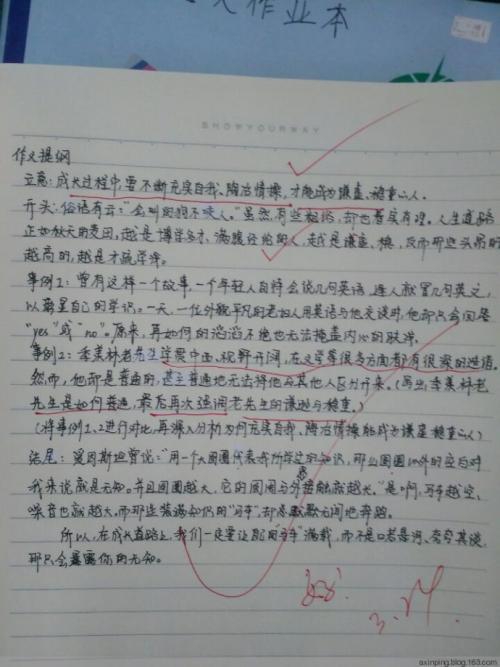 作业本
SHOWYOURWAY
作文提纲
立意:成长过程中,要不断充实自我、陶冶情操,才能成为谦虚、稳重的人。
开头:俗语有云:“会叫的狗不咬人。”虽然,有些粗俗,却也着实有理。人生道路
正如秋天的麦田,越是博学多才,满腹经纶的人,越是谦虚、稳,反而那些头昂的
越高的,越是才疏学浅。
事例1:曾有这样一个故事,一个年轻人自恃会说几句英语,逢人就冒几句英文,
以彰显自己的学识。一天,一位外貌平凡的老妇人用英语与他交谈时,他却只会回答
“yes”或“no”。原来,再如何的滔滔不绝也无法掩盖内心的肤浅。
事例2:季羡林老先生学贯中西,视野开阔,在文学等很多方面都有很深的造诣。
然而,他却是普通的,甚至普通地无法将他与其他人区分开来。(写出季羡林老
先生是如何普通,最后再次强调老先生的谦逊与稳重。)
(将事例1、2进行对比,再深入分析为何充实自我、陶冶情操能成为谦虚稳重的人)
结尾:爱因斯坦曾说:“用一个大圆圈代表我所学过的知识,那么圆圈以外的空白对
我来说就是无知。并且圆圈越大,它的周围与外界接触就越长。”是啊,马车越空,
噪音也就越大,而那些装满知识的“马车”,却总默默无闻地奔跑。
所以,在成长道路上,我们一定要让自己的“马车”满载,而不是口若悬河、夸夸其谈,
那只会暴露你的无知。
好!
3.14.
axinping.blog.163.com